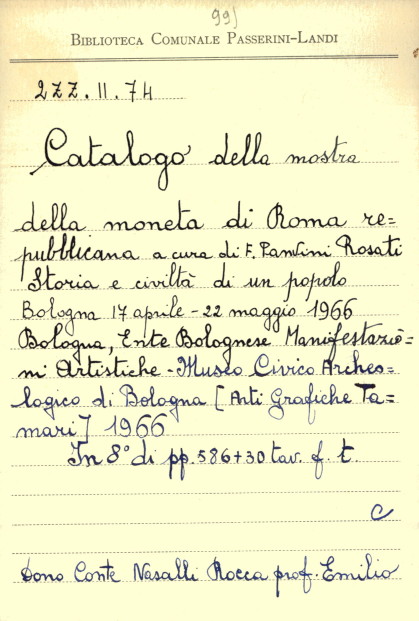 99)
BIBLIOTECA COMUNALE PASSERINI-LANDI
2ZZ.II.74
Catalogo della mostra
della moneta di Roma re=
pubblicana a cura di F. Panvini Rosati
Storia e civiltà di un popolo
Bologna 17 aprile - 22 maggio 1966
Bologna, Ente Bolognese Manifestazio=
ni Artistiche - Museo Civico Archeo=
logico di Bologna [Arti Grafiche Ta=
mari] 1966
In 8° di pp. 586+30 tav. f. t.
C
Dono Conte Nasalli Rocca prof. Emilio